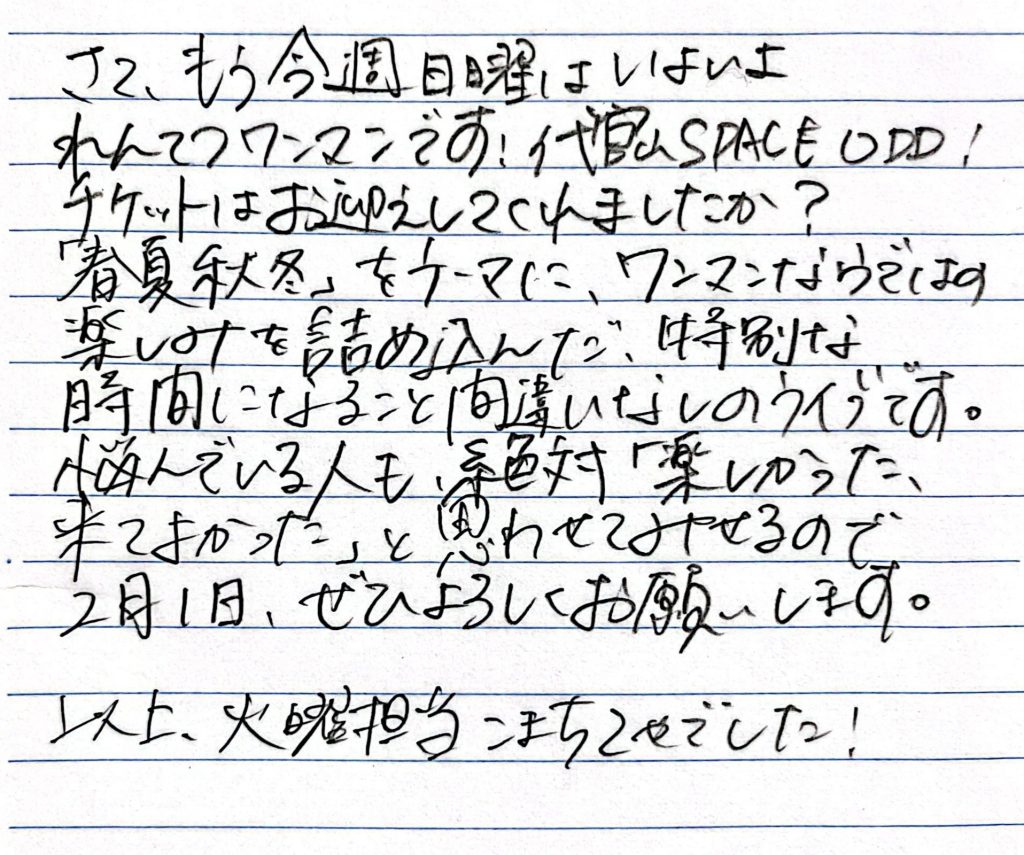 さて、もう今週日曜はいよいよ
れんてつワンマンです！代官山SPACE ODD！
チケットはお迎えしてくれましたか？
「春夏秋冬」をテーマに、ワンマンならではの
楽しみを詰め込んだ、特別な
時間になること間違いなしのライブです。
悩んでいる人も、絶対「楽しかった、
来てよかった」と思わせてみせるので
2月1日、ぜひよろしくお願いします。
以上、火曜担当こまちてせでした！